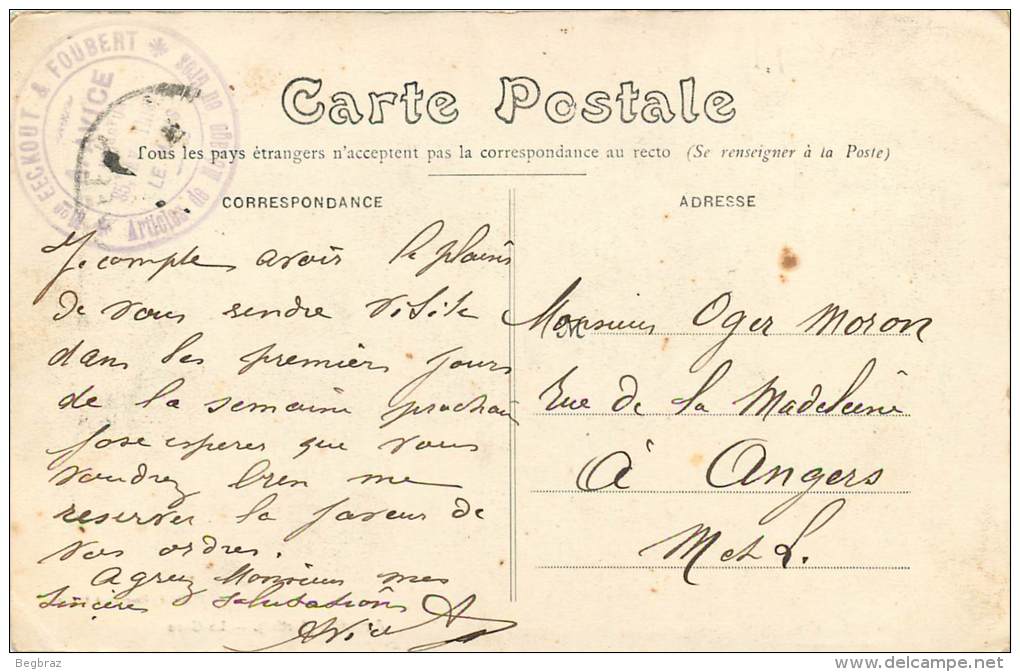 EECKOUT & FOUBERT
Articles de Ménage en gros
A. VICE
Carte Postale
Tous les pays étrangers n'acceptent pas la correspondance au recto (Se renseigner à la Poste)
CORRESPONDANCE
Je compte avoir le plaisir
de vous rendre visite
dans les premiers jours
de la semaine prochain
j'ose esperer que vous
voudrez bien me
reserver la faveur de
vos ordres.
Agreez Monsieur mes
sincères salutations
AVice
ADRESSE
Monsieur Oger Moron
Rue de la Madeleine
à Angers
M et L.
Begbraz
www.delcampe.net